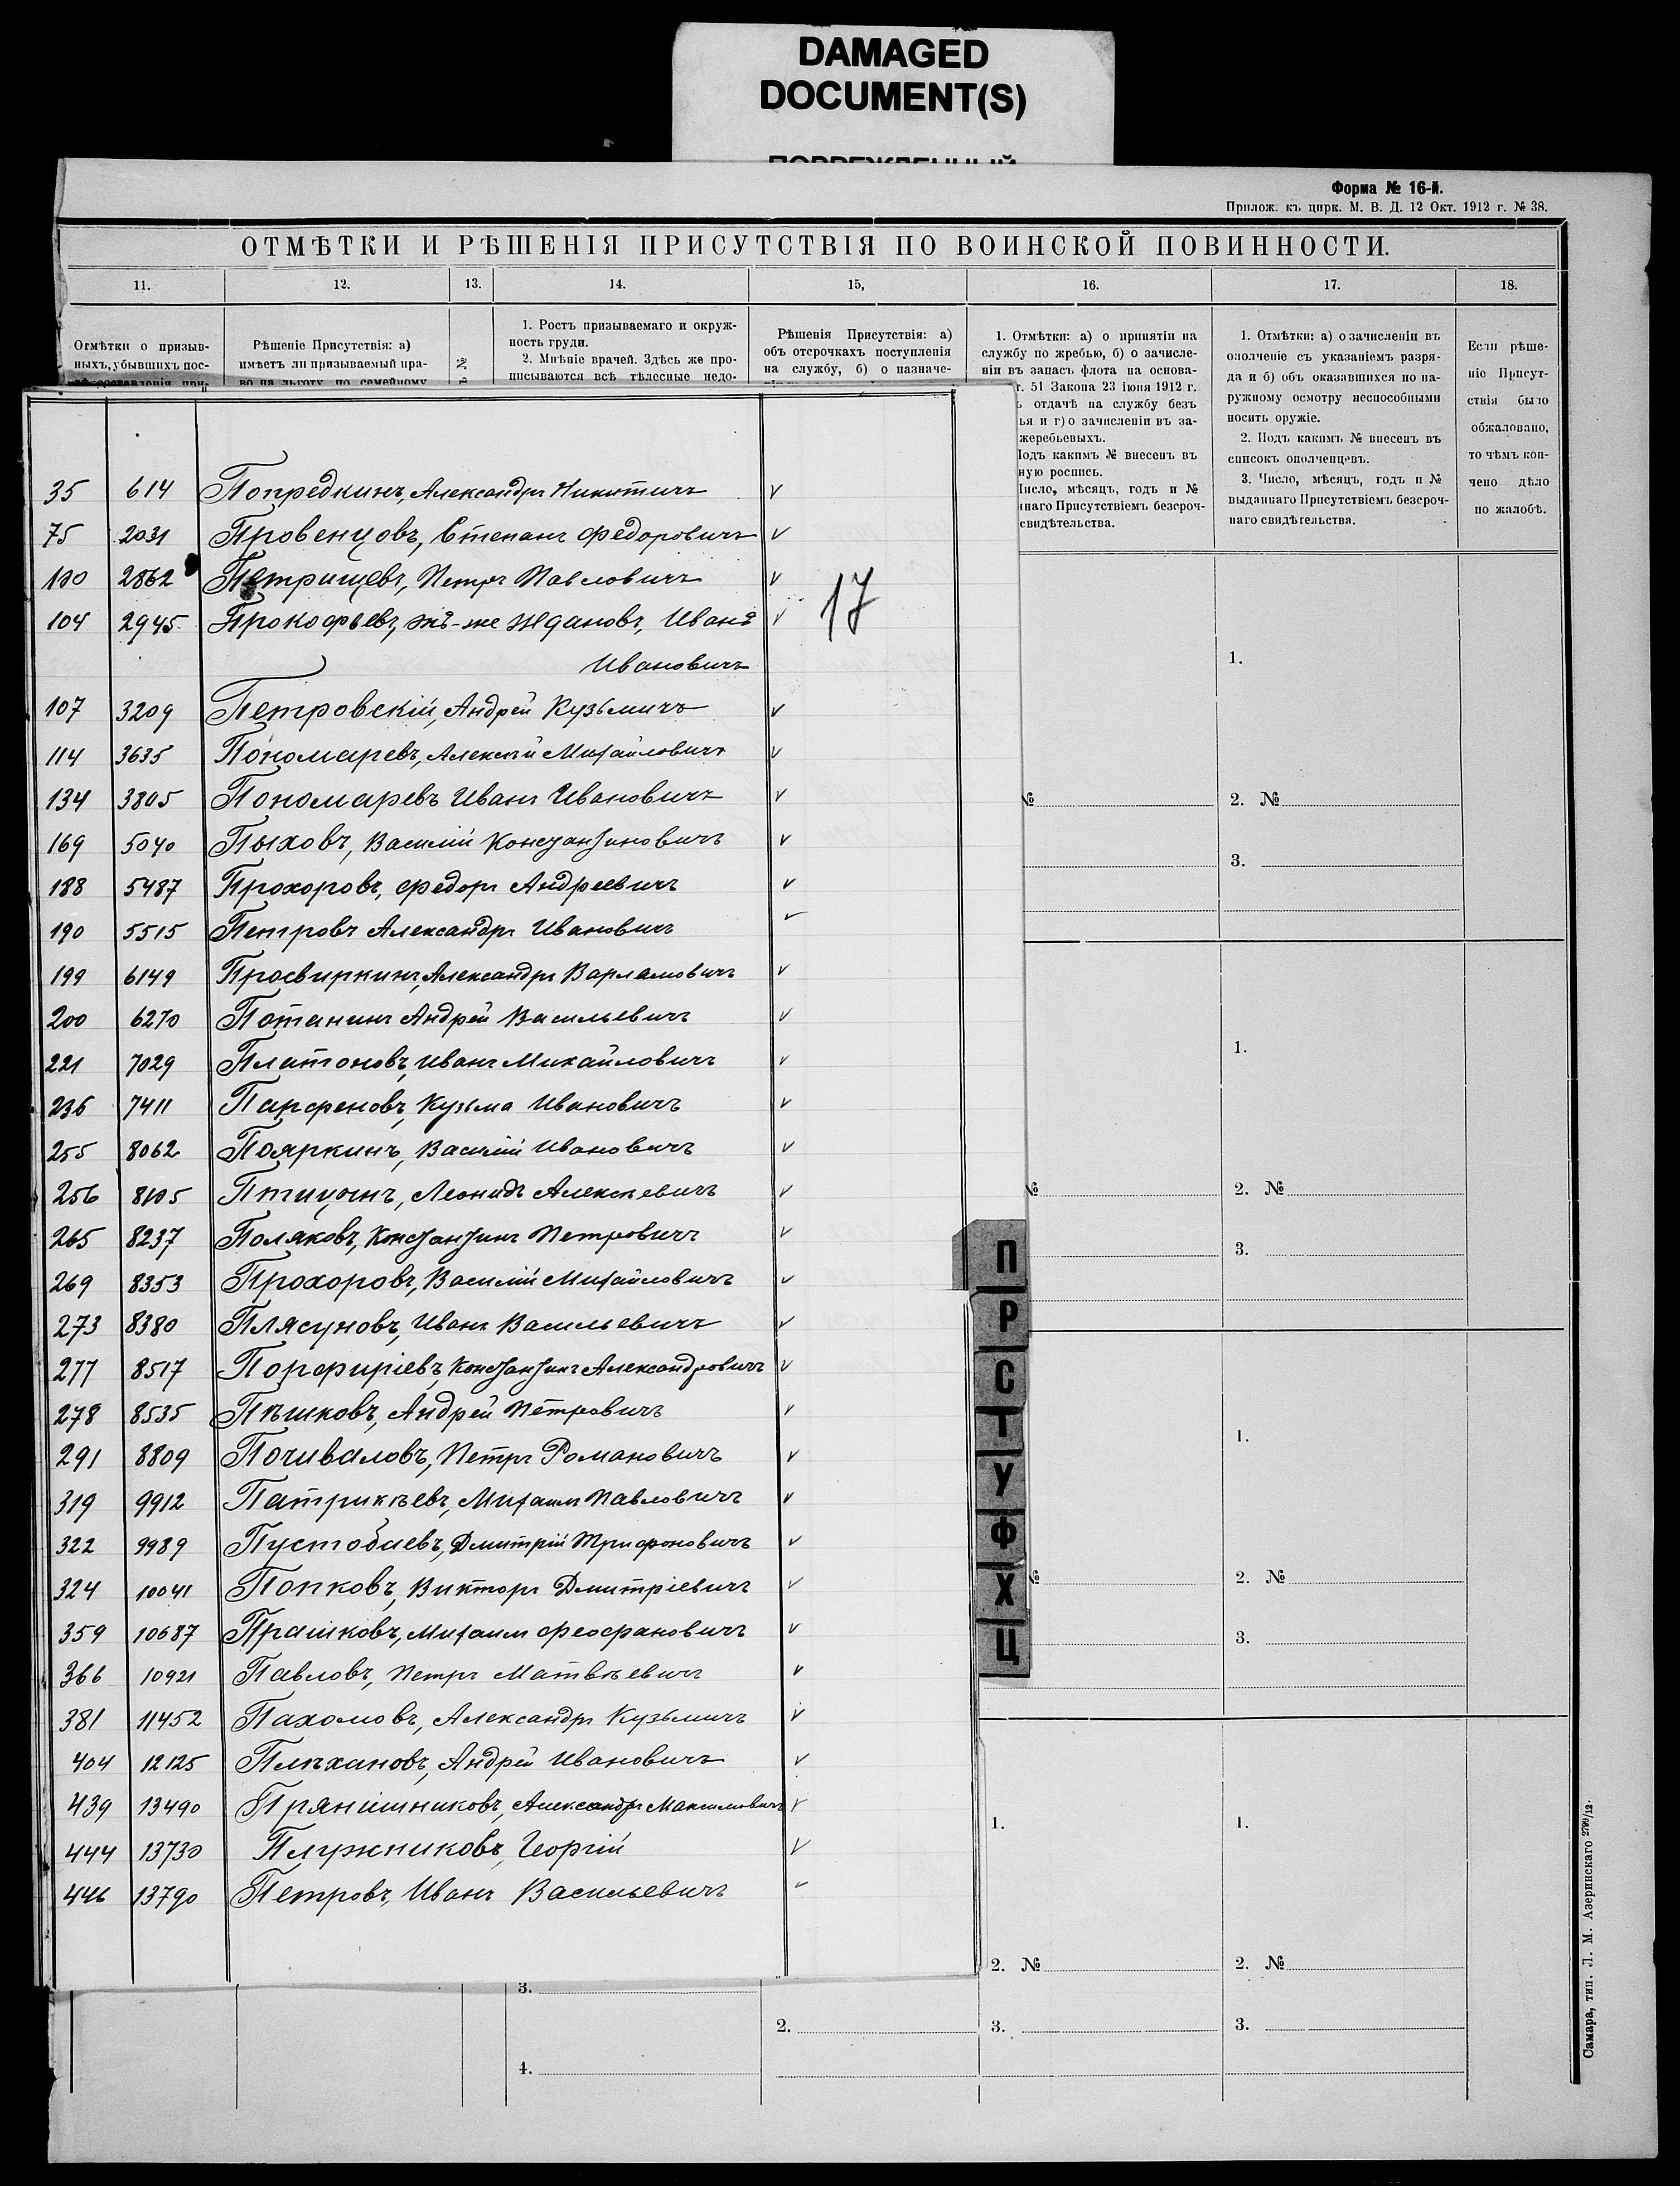 DAMAGED
DOCUMENT(S)
Форма № 16-й.
Прилож. къ цирк. М. В. Д. 12 Окт. 1912 г. № 38.
ОТМѢТКИ И РѢШЕНІЯ ПРИСУТСТВІЯ ПО ВОИНСКОЙ ПОВИННОСТИ.
11. 12. 13. 14. 15, 16. 17. 18.
Отмѣтки о призыв-
ныхъ, убывшихъ пос-
Рѣшеніе Присутствія: а)
имѣетъ ли призываемый пра-
во на льготу по семейному
№
1. Ростъ призываемаго и окруж-
ность груди.
2. Мнѣніе врачей. Здѣсь же про-
писываются всѣ тѣлесные недо-
Рѣшенія Присутствія: а)
объ отсрочкахъ поступленія
на службу, б) о назначе-
1. Отмѣтки: а) о принятіи на
службу по жребью, б) о зачисле-
ніи въ запасъ флота на основа-
т. 51 Закона 23 іюня 1912 г.
отдачѣ на службу безъ
ья и г) о зачисленіи въ за-
жеребьевыхъ.
Подъ какимъ № внесенъ въ
ную роспись.
Число, мѣсяцъ, годъ и №
ннаго Присутствіемъ безсроч-
свидѣтельства.
1. Отмѣтки: а) о зачисленіи въ
ополченіе съ указаніемъ разря-
да и б) объ оказавшихся по на-
ружному осмотру неспособными
носить оружіе.
2. Подъ какимъ № внесенъ въ
списокъ ополченцевъ.
3. Число, мѣсяцъ, годъ и №
выданнаго Присутствіемъ безсроч-
наго свидѣтельства.
Если рѣше-
ніе Присут-
ствія было
обжаловано,
то чѣмъ кон-
чено дѣло
по жалобѣ.
35 614 Попредкинъ, Александръ Никитичъ v
75 2031 Провенцовъ, Степанъ Федоровичъ v
100 2862 Петрищевъ, Петръ Павловичъ v
104 2945 Прокофьевъ, онъ-же Ждановъ, Иванъ v 17
Ивановичъ
107 3209 Петровскій, Андрей Кузьмичъ v
114 3635 Пономаревъ, Алексѣй Михайловичъ v
134 3805 Пономаревъ Иванъ Ивановичъ v
169 5040 Пыховъ, Василій Константиновичъ v
188 5487 Прохоровъ, Федоръ Андреевичъ v
190 5515 Петровъ Александръ Ивановичъ v
199 6149 Просвиркинъ, Александръ Варламовичъ v
200 6270 Потанинъ Андрей Васильевичъ v
221 7029 Платоновъ, Иванъ Михайловичъ v
236 7411 Парфеновъ, Кузьма Ивановичъ v
255 8062 Пояркинъ, Василій Ивановичъ v
256 8105 Птицынъ, Леонидъ Алексѣевичъ v
265 8237 Поляковъ, Константинъ Петровичъ v
269 8353 Прохоровъ, Василій Михайловичъ v
273 8380 Плясуновъ, Иванъ Васильевичъ v
277 8517 Порфиріевъ, Константинъ Александровичъ v
278 8535 Пѣшковъ, Андрей Петровичъ v
291 8809 Почиваловъ, Петръ Романовичъ v
319 9912 Патрикѣевъ, Михаилъ Павловичъ v
322 9989 Пустобаевъ, Дмитрій Трифоновичъ v
324 10041 Попковъ, Викторъ Дмитріевичъ v
359 10687 Прашковъ, Михаилъ Феофановичъ v
366 10921 Павловъ, Петръ Матвѣевичъ v
381 11452 Пахомовъ, Александръ Кузьмичъ v
404 12125 Плѣхановъ, Андрей Ивановичъ v
439 13490 Прянишниковъ, Александръ Максимовичъ v
444 13730 Плужниковъ, Георгій v
446 13790 Петровъ, Иванъ Васильевичъ v
П
Р
С
Т
У
Ф
Х
Ц
1.
№ 2. №
3.
1.
№ 2. №
3.
1.
№ 2. №
3.
1. 1.
2. № 2. №
3.
2. 3. 3.
4.
Самара, тип. Л. М. Азеринскаго 2799/12.